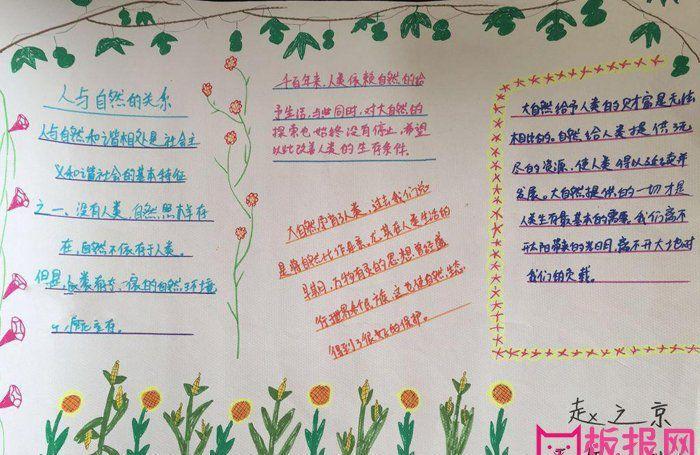 人与自然的关系
人与自然和谐相处是社会主
义和谐社会的基本特征
之一、没有人类,自然照样存
在,自然不依存于人类。
但是,人类
千百年来,人类依赖自然的给
予生活,与此同时,对大自然的
探索也始终没有停止,希望
以此改善人类的生存条件。
大自然
是将自然比作母亲,尤其在人类生活的
早期,万物有灵的思想曾经盛
行世界各个民族,这也使自然生态
得到了很好的保护。
大自然给予人类的财富是无法
相比的。自然给人类提供了无
尽的资源,使人类得以延续并
发展。大自然提供的一切才是
人类生存最基本的需要。我们离不
开太阳带来的光明,离不开大地对
我们的负载。
赵之京
板报网